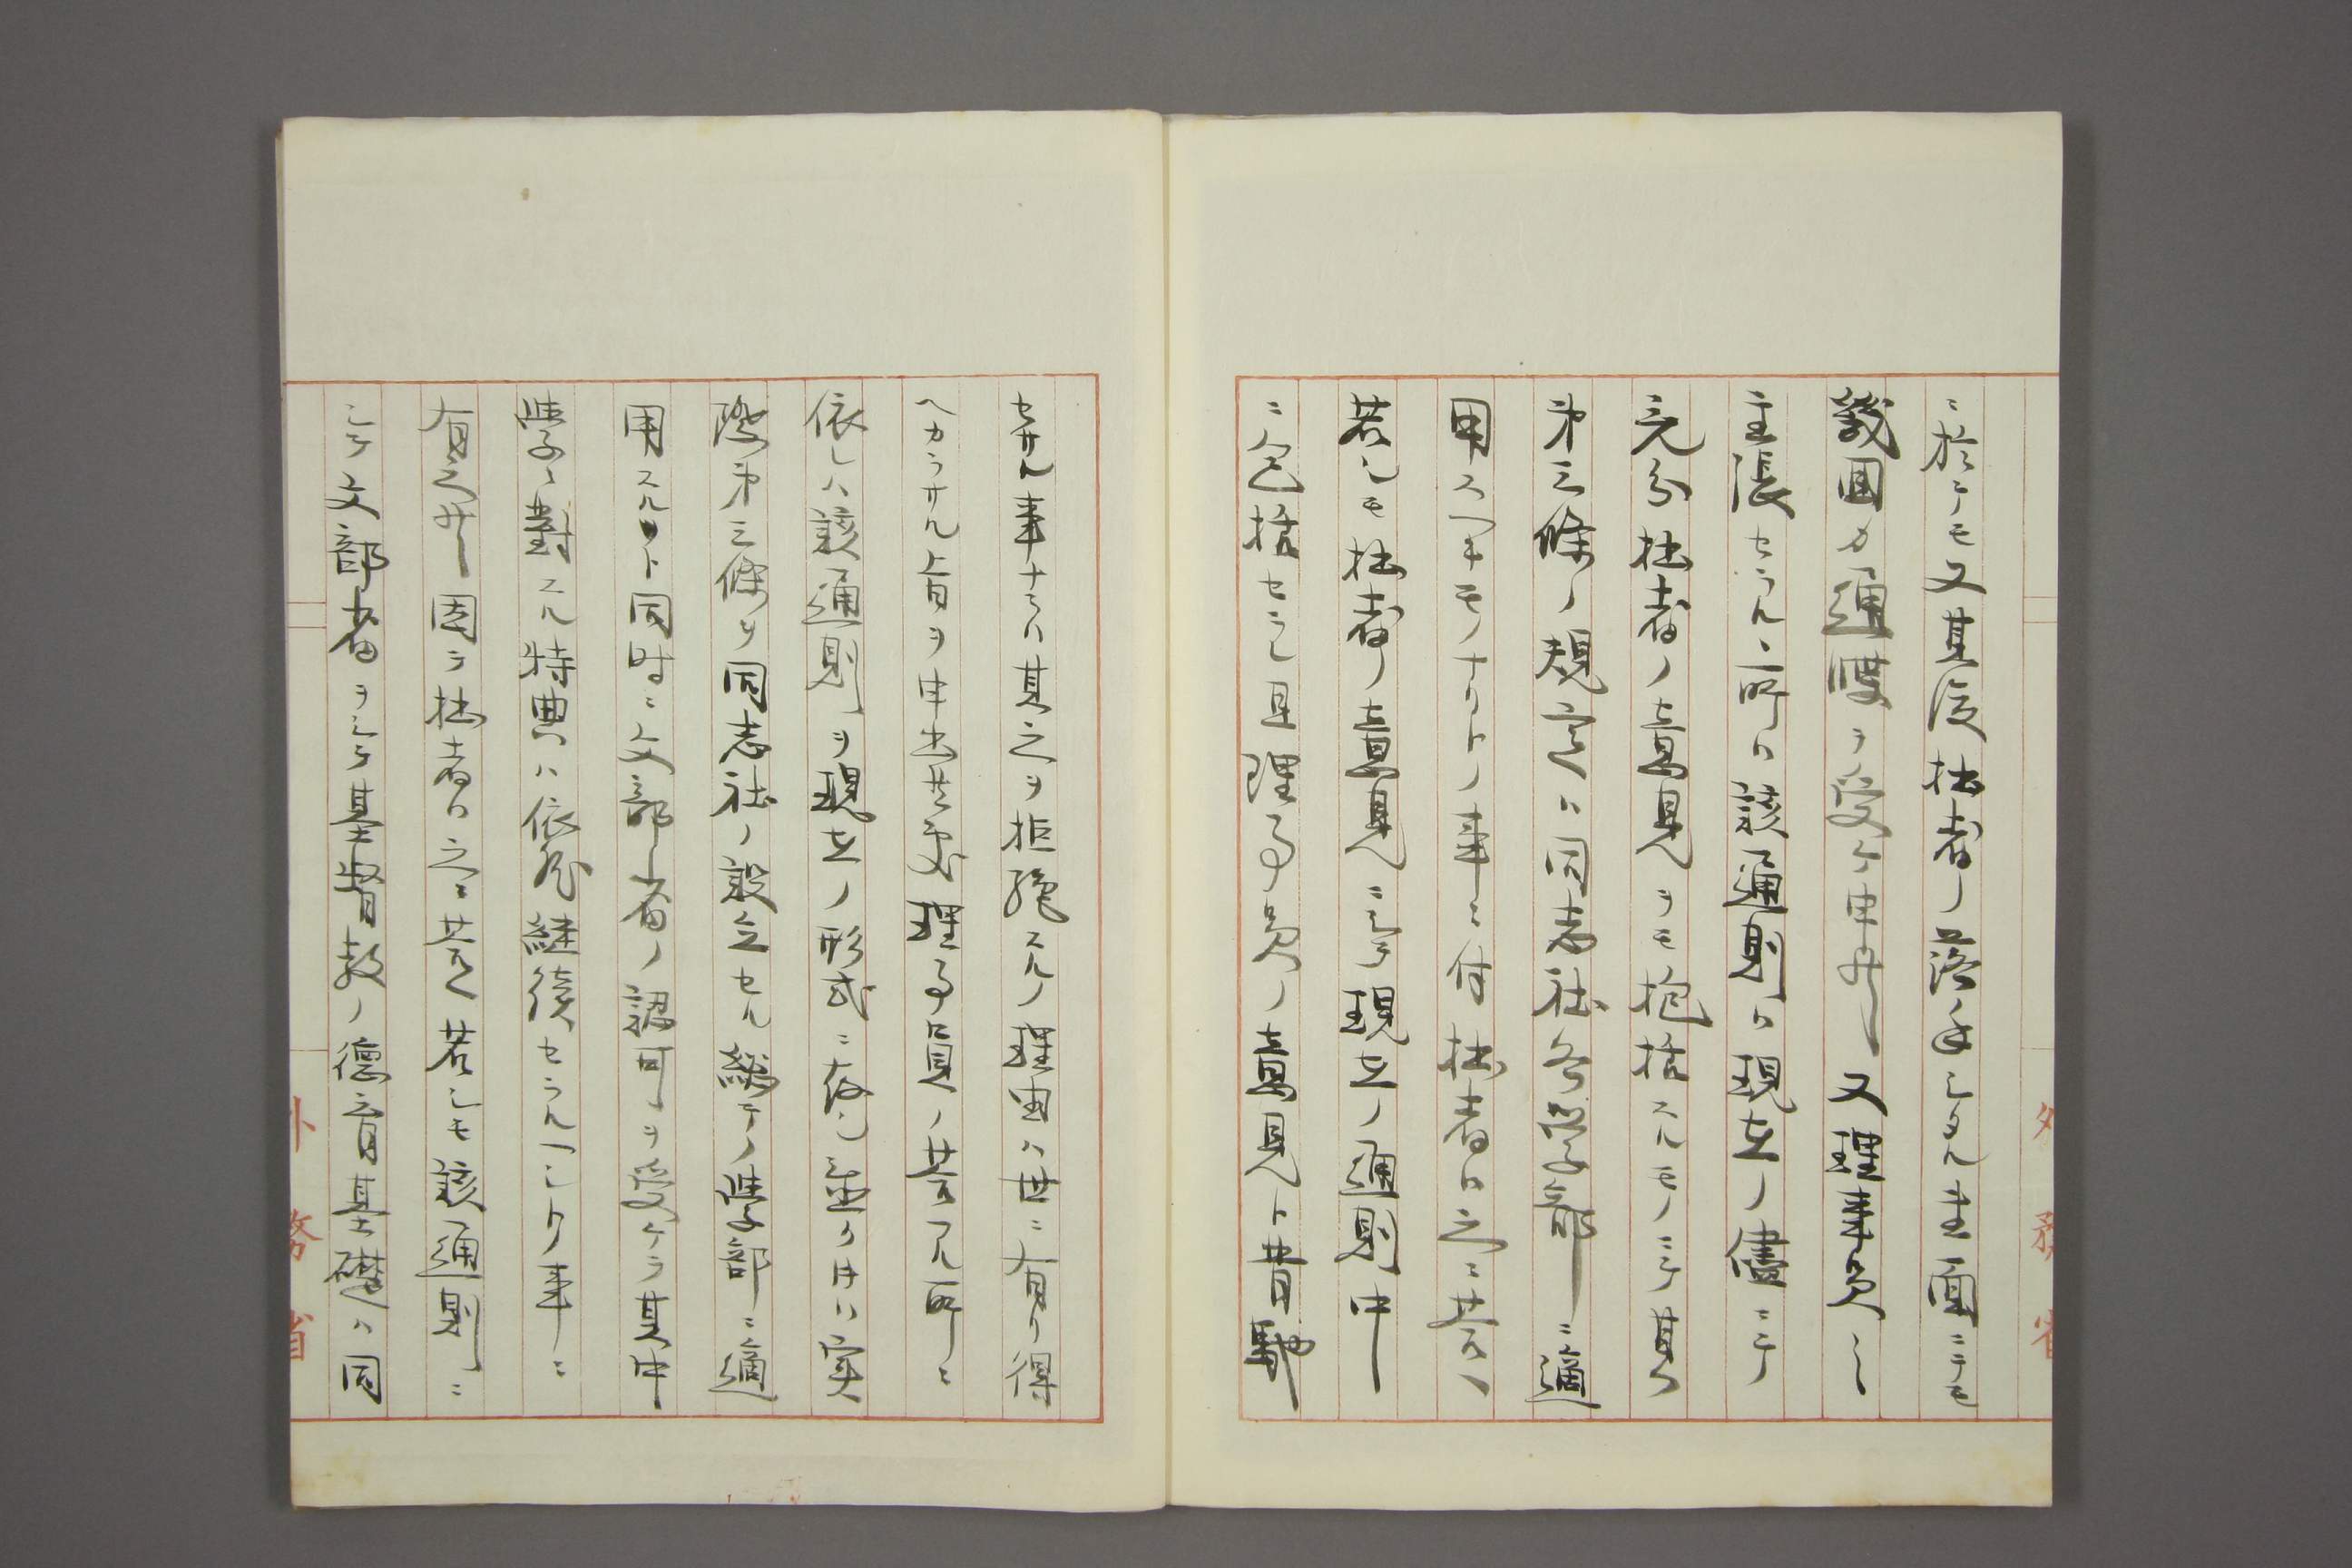 ニ於テモ又其後拙者ノ落手シタル書面ニテモ
幾回カ通牒ヲ受ケ申候又理事員ノ
主張セラルヽ所ハ該通則ハ現在ノ儘ニテ
充分拙者ノ意見ヲモ抱括スルモノニテ其ハ
第三條ノ規定ハ同志社各学部ニ適
用スヘキモノナリトノ事ニ付拙者ハ之ニ答ヘ
若シモ拙者ノ意見ニシテ現在ノ通則中
ニ包括セラレ且理事員ノ意見ト背馳
セサル事ナラハ其之ヲ拒絶スルノ理由ハ毋ニ有リ得
ヘカラサル旨ヲ申出候処理事員ノ答フル所ニ
依レハ該通則ヲ現在ノ形式ニ存シ置カサレハ実
際第三條ヲ同志社ノ設立セル総テノ学部ニ適
用スルト同時ニ文部省ノ認可ヲ受ケテ其中
学ニ對スル特典ハ依然継続セラルヘシトノ事ニ
有之候因テ拙者ハ之ニ答ヘ若シモ該通則ニ
シテ文部省ヲシテ基督教ノ徳育基礎ハ同
外務省
外務省